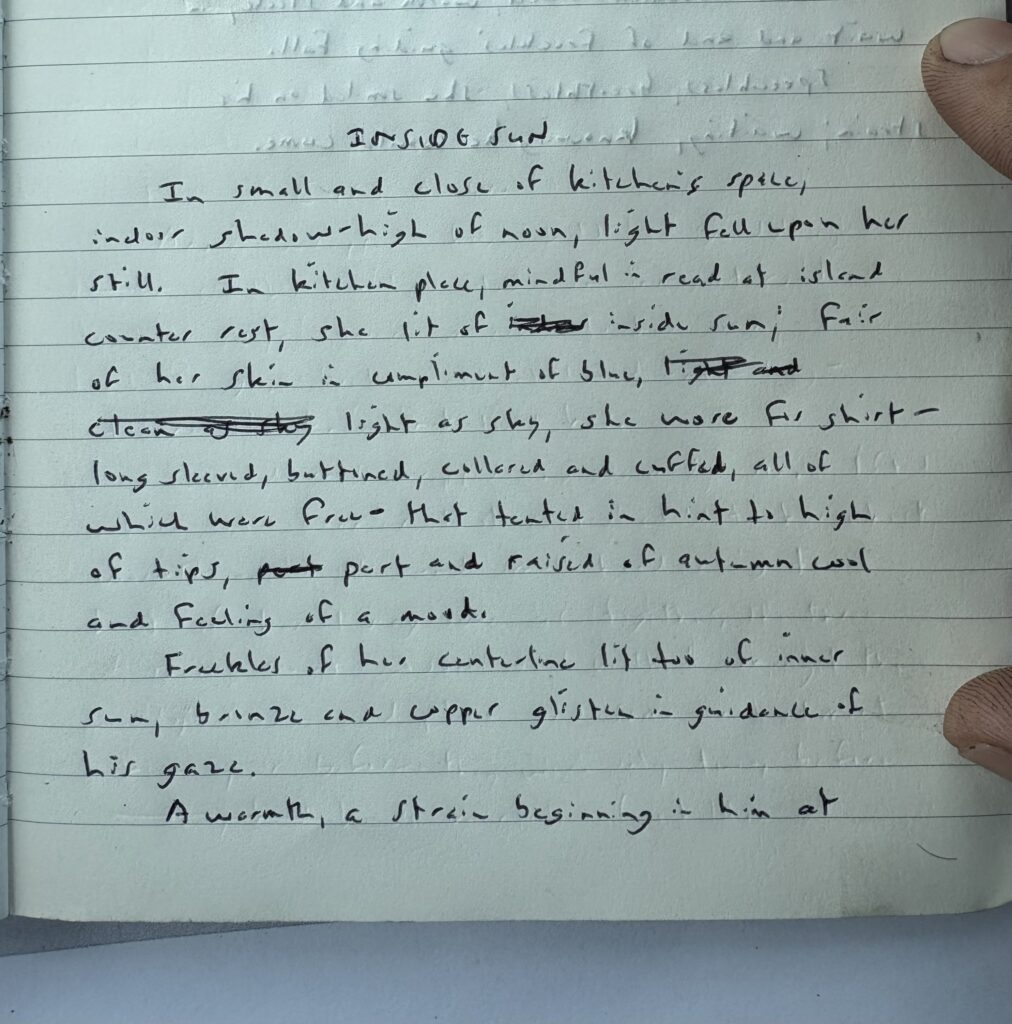 INSIDE SUN
In small and close of kitchen's space,
indoor shadow-high of noon, light fell upon her
still. In kitchen place, mindful in read at island
counter rest, she lit of inside sun; fair
of her skin in compliment of blue, light and
clean as sky light as sky, she wore for shirt-
long sleeved, buttined, collared and cuffed, all of
which were free- that tented in hint to high
of tips, part and raised of autumn cool
and feeling of a mood.
Freckles of her centerline lit too of inner
sun, bronze and copper glisten in guidance of
his gaze.
A warmth, a strain beginning in him at